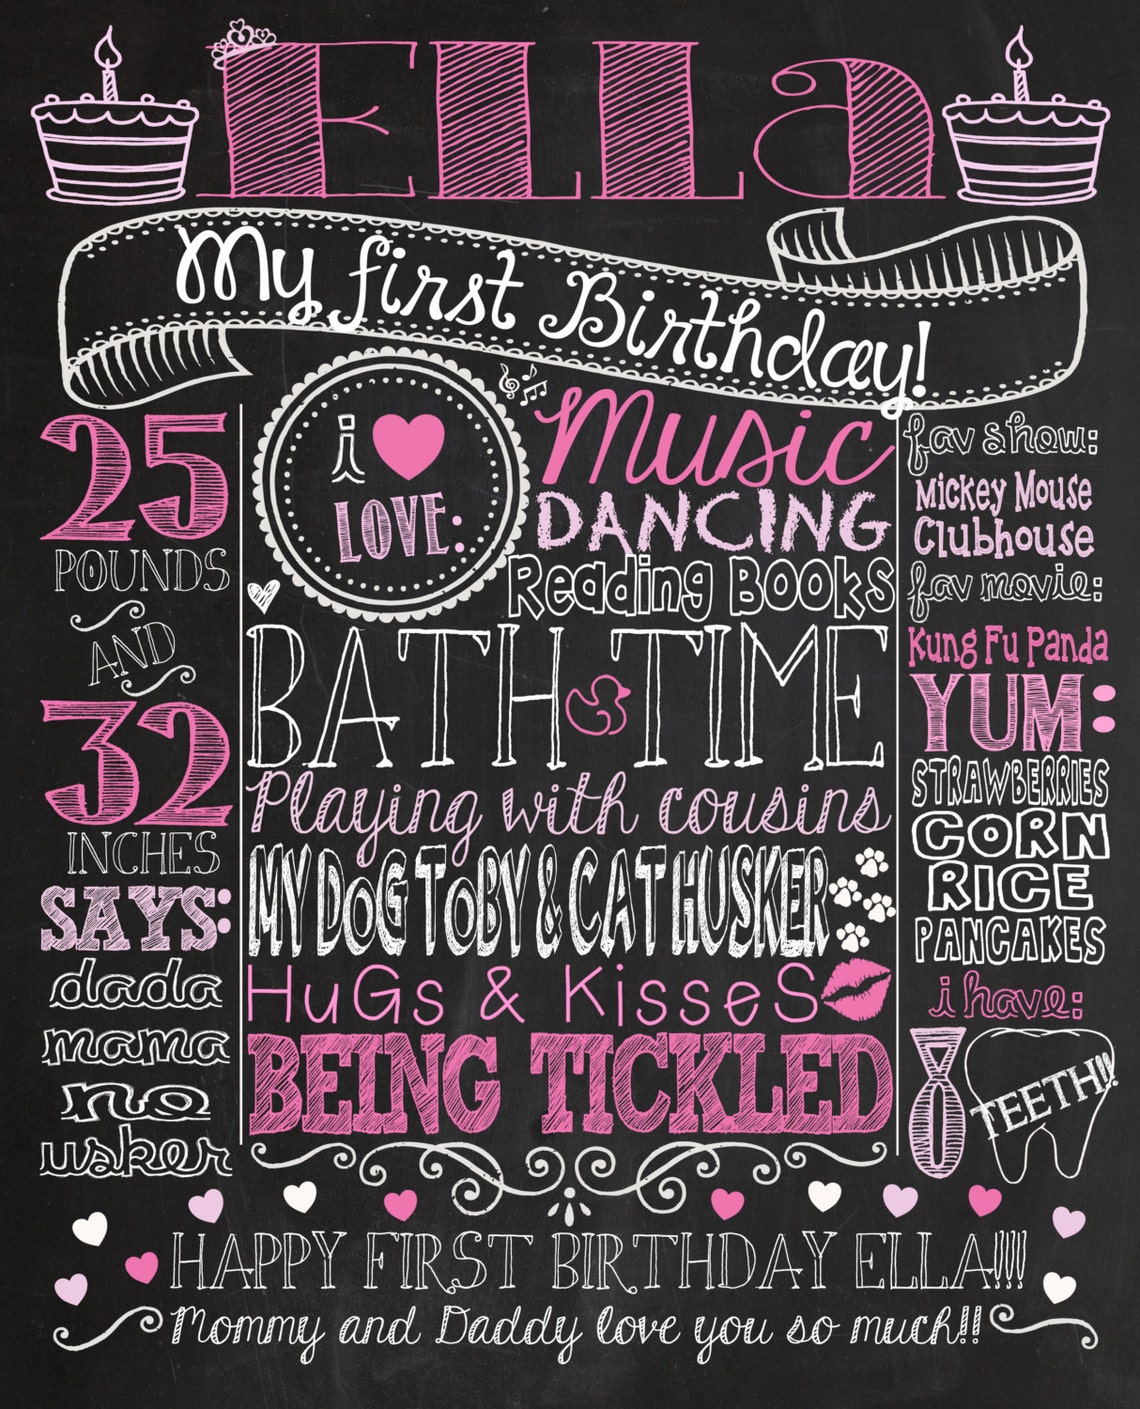 Ella
My first Birthday!
25
POUNDS
AND
32
INCHES
SAYS:
dada
mama
no
usker
i
LOVE:
Music
DANCING
Reading Books
BATH TIME
Playing with cousins
MY DOG TOBY & CAT HUSKER
HuGs & KisseS
BEING TICKLED
fav show:
Mickey Mouse
Clubhouse
fav movie:
Kung Fu Panda
YUM:
STRAWBERRIES
CORN
RICE
PANCAKES
i have:
8
TEETH!!
HAPPY FIRST BIRTHDAY ELLA!!!!
Mommy and Daddy love you so much!!